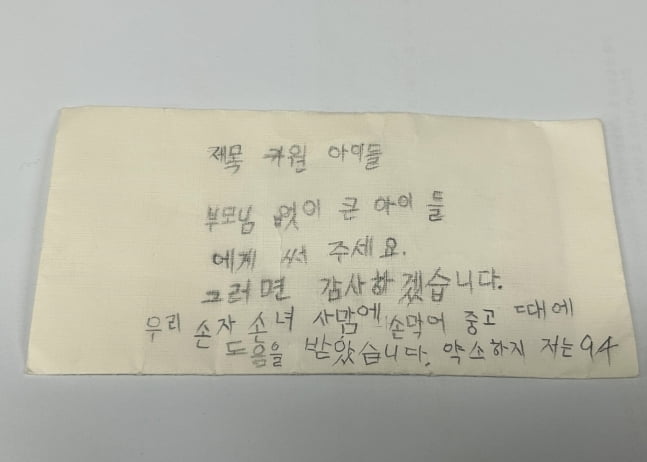 제목 커월 아이들
부모님 없이 큰 아이들
에게 써 주세요.
그러면 감사하겠습니다.
우리 손자 손녀 사맘에 손막어 중고 때에
도움을 받았습니다. 약소하지 저는 94